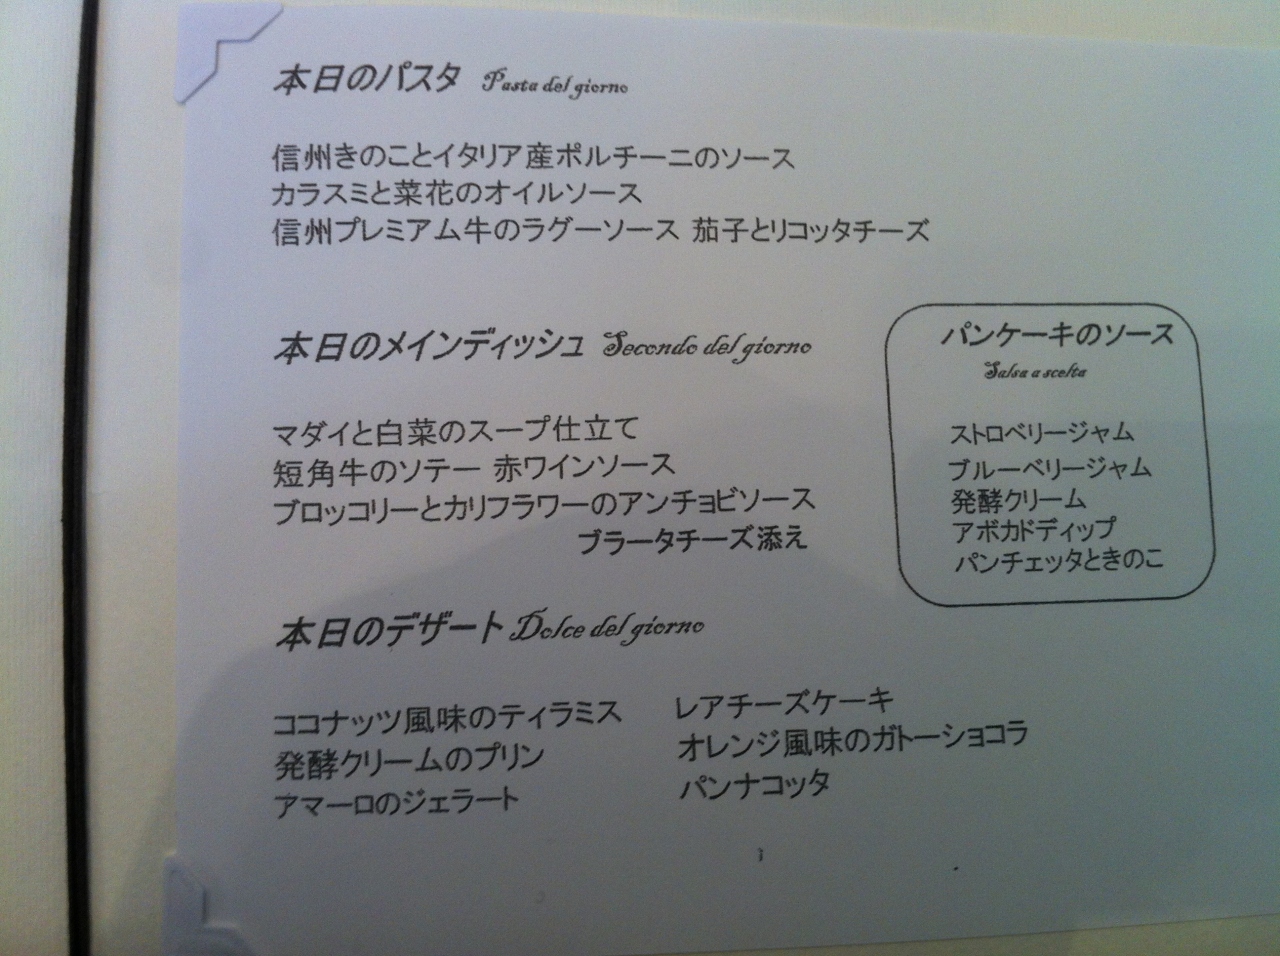 本日のパスタ Pasta del giorno
信州きのことイタリア産ポルチーニのソース
カラスミと菜花のオイルソース
信州プレミアム牛のラグーソース 茄子とリコッタチーズ
本日のメインディッシュ Secondo del giorno
マダイと白菜のスープ仕立て
短角牛のソテー 赤ワインソース
ブロッコリーとカリフラワーのアンチョビソース
ブラータチーズ添え
パンケーキのソース
Salsa a scelta
ストロベリージャム
ブルーベリージャム
発酵クリーム
アボカドディップ
パンチェッタときのこ
本日のデザート Dolce del giorno
ココナッツ風味のティラミス
発酵クリームのプリン
アマーロのジェラート
レアチーズケーキ
オレンジ風味のガトーショコラ
パンナコッタ